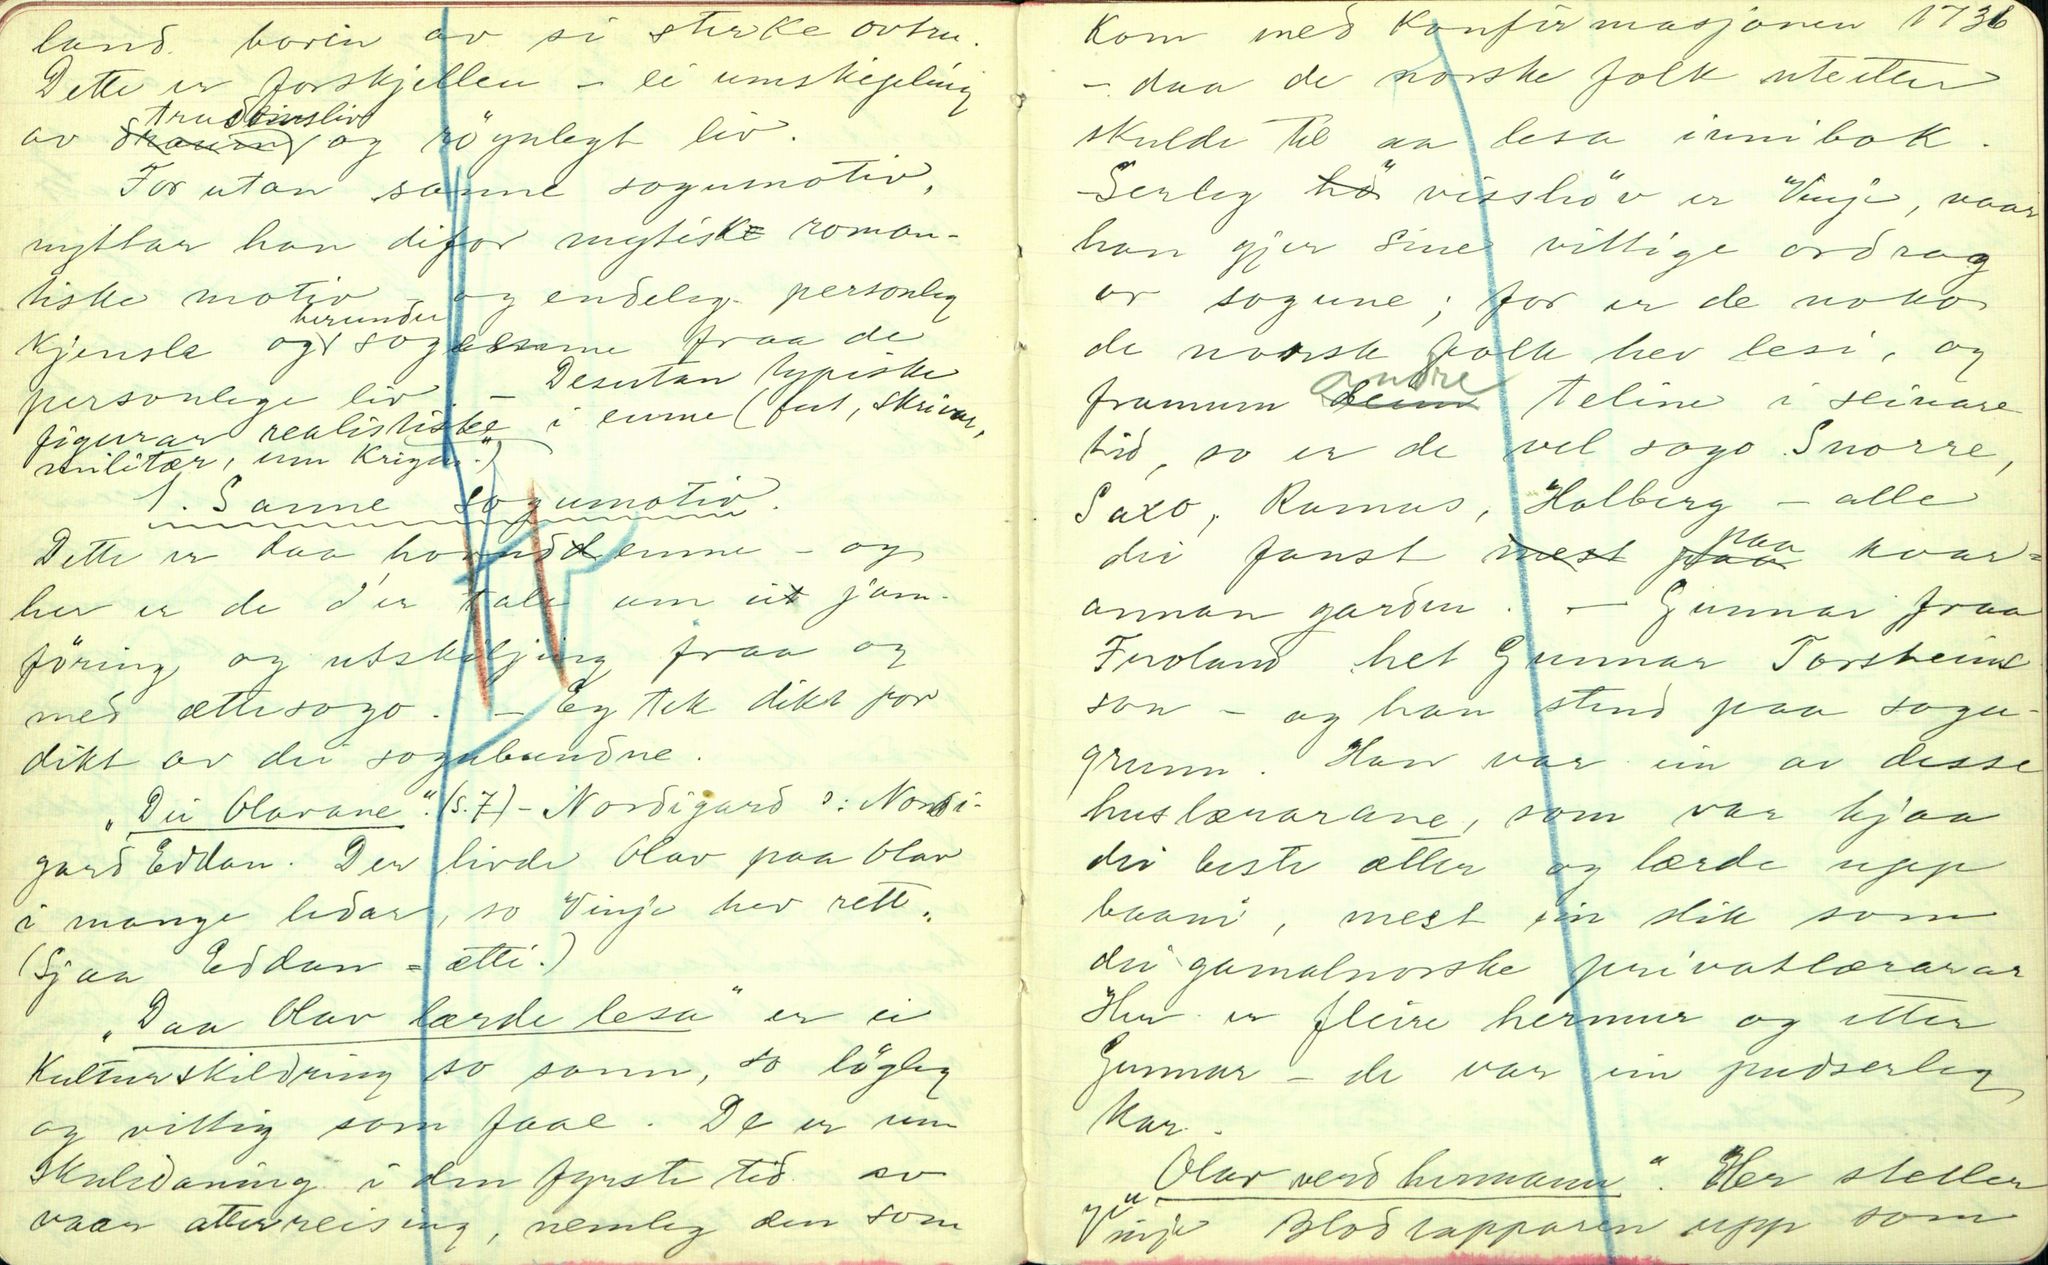 land borin av si sterke ovtru.
Dette er forskjellen - ei umskifeling
trudomsliv
av draum og røynlegt liv.
Forutan sanne sogumotiv,
nyttar han difor mytiske roman-
tiske motiv - og endeleg personleg
herunder
kjensle og sogessame fraa de
personlege liv - Desutan typiske
figurar realistiske i emne (fut, skrivar,
militær, um krigen.)
1. Sanne sogumotiv.
Dette er daa hovudemne - og
her er de d'er tale um eit jam-
föring og utskiljing fraa og
med ættesogo. - Eg tek dikt for
dikt av dei sogubundne.
"Dei Olavane". (s.7) - Nordigard ɔ: Nordi-
gard Eddan. Der livde Olav paa Olav
i mange ledar, so Vinje hev rett.
(Sjaa Eddan = ætti.)
"Daa Olav lærde lesa" er ei
Kulturskildring so sann, so lögleg
og vittig som faae. De er um
Skuledaning i den fyrste tid av
vaar atterreising, nemleg den som
kom med Konfirmasjonen 1736
- daa de norske folk uteetter
skulde til aa lesa innibok.
Serleg hö visshöv er Vinje, naar
han gjer sine vittige ordrag
or sogune; for er de noko
de norske folk hev lesi, og
andre
framum dem teline i seinare
tid, so er de vel sogo. Snorre,
Saxo, Ramus, Holberg - alle
paa
dei fanst mest paa kvar=
annan garden. - Gunnar fraa
Froland het Gunnar Torsteins
son - og han stend paa sogu-
grunn. Han var ein av desse
huslærarane, som var hjaa
dei beste ætter og lærde upp
baani, mest ein slik som
dei gamalnorske privatlærarar
Her er fleire hermur og etter
Gunnar - de var ein pudserleg
kar.
"Olav verd hermann". Her steller
Vinje Blodtapparen upp som